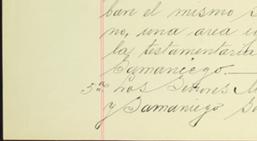 ban el mismo
no, una area
la testamentaria
Samaniego.
5ª Los Señores
y Samaniego